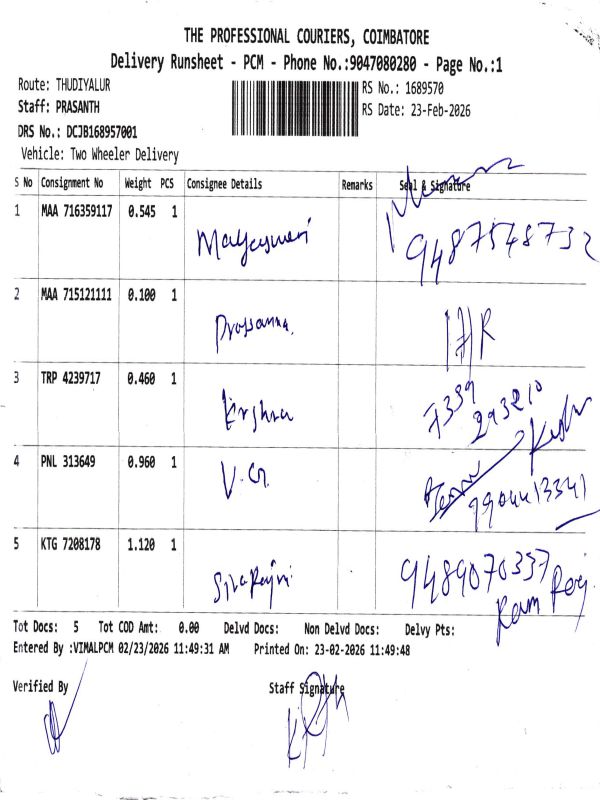 THE PROFESSIONAL COURIERS, COIMBATORE
Delivery Runsheet - PCM - Phone No.:9047080280 - Page No.:1
Route: THUDIYALUR
RS No.: 1689570
Staff: PRASANTH
RS Date: 23-Feb-2026
DRS No.: DCJB168957001
Vehicle: Two Wheeler Delivery
S No Consignment No Weight PCS Consignee Details Remarks Seal & Signature
1 MAA 716359117 0.545 1
9487548732
2 MAA 715121111 0.100 1 Prassanna.
3 TRP 4239717 0.460 1 Krishna 7339
293210
4 PNL 313649 0.960 1 V.G.
9904413341
5 KTG 7208178 1.120 1 9489070337
Ram Raj
Tot Docs: 5 Tot COD Amt: 0.00 Delvd Docs: Non Delvd Docs: Delvy Pts:
Entered By :VIMALPCM 02/23/2026 11:49:31 AM Printed On: 23-02-2026 11:49:48
Verified By Staff Signature